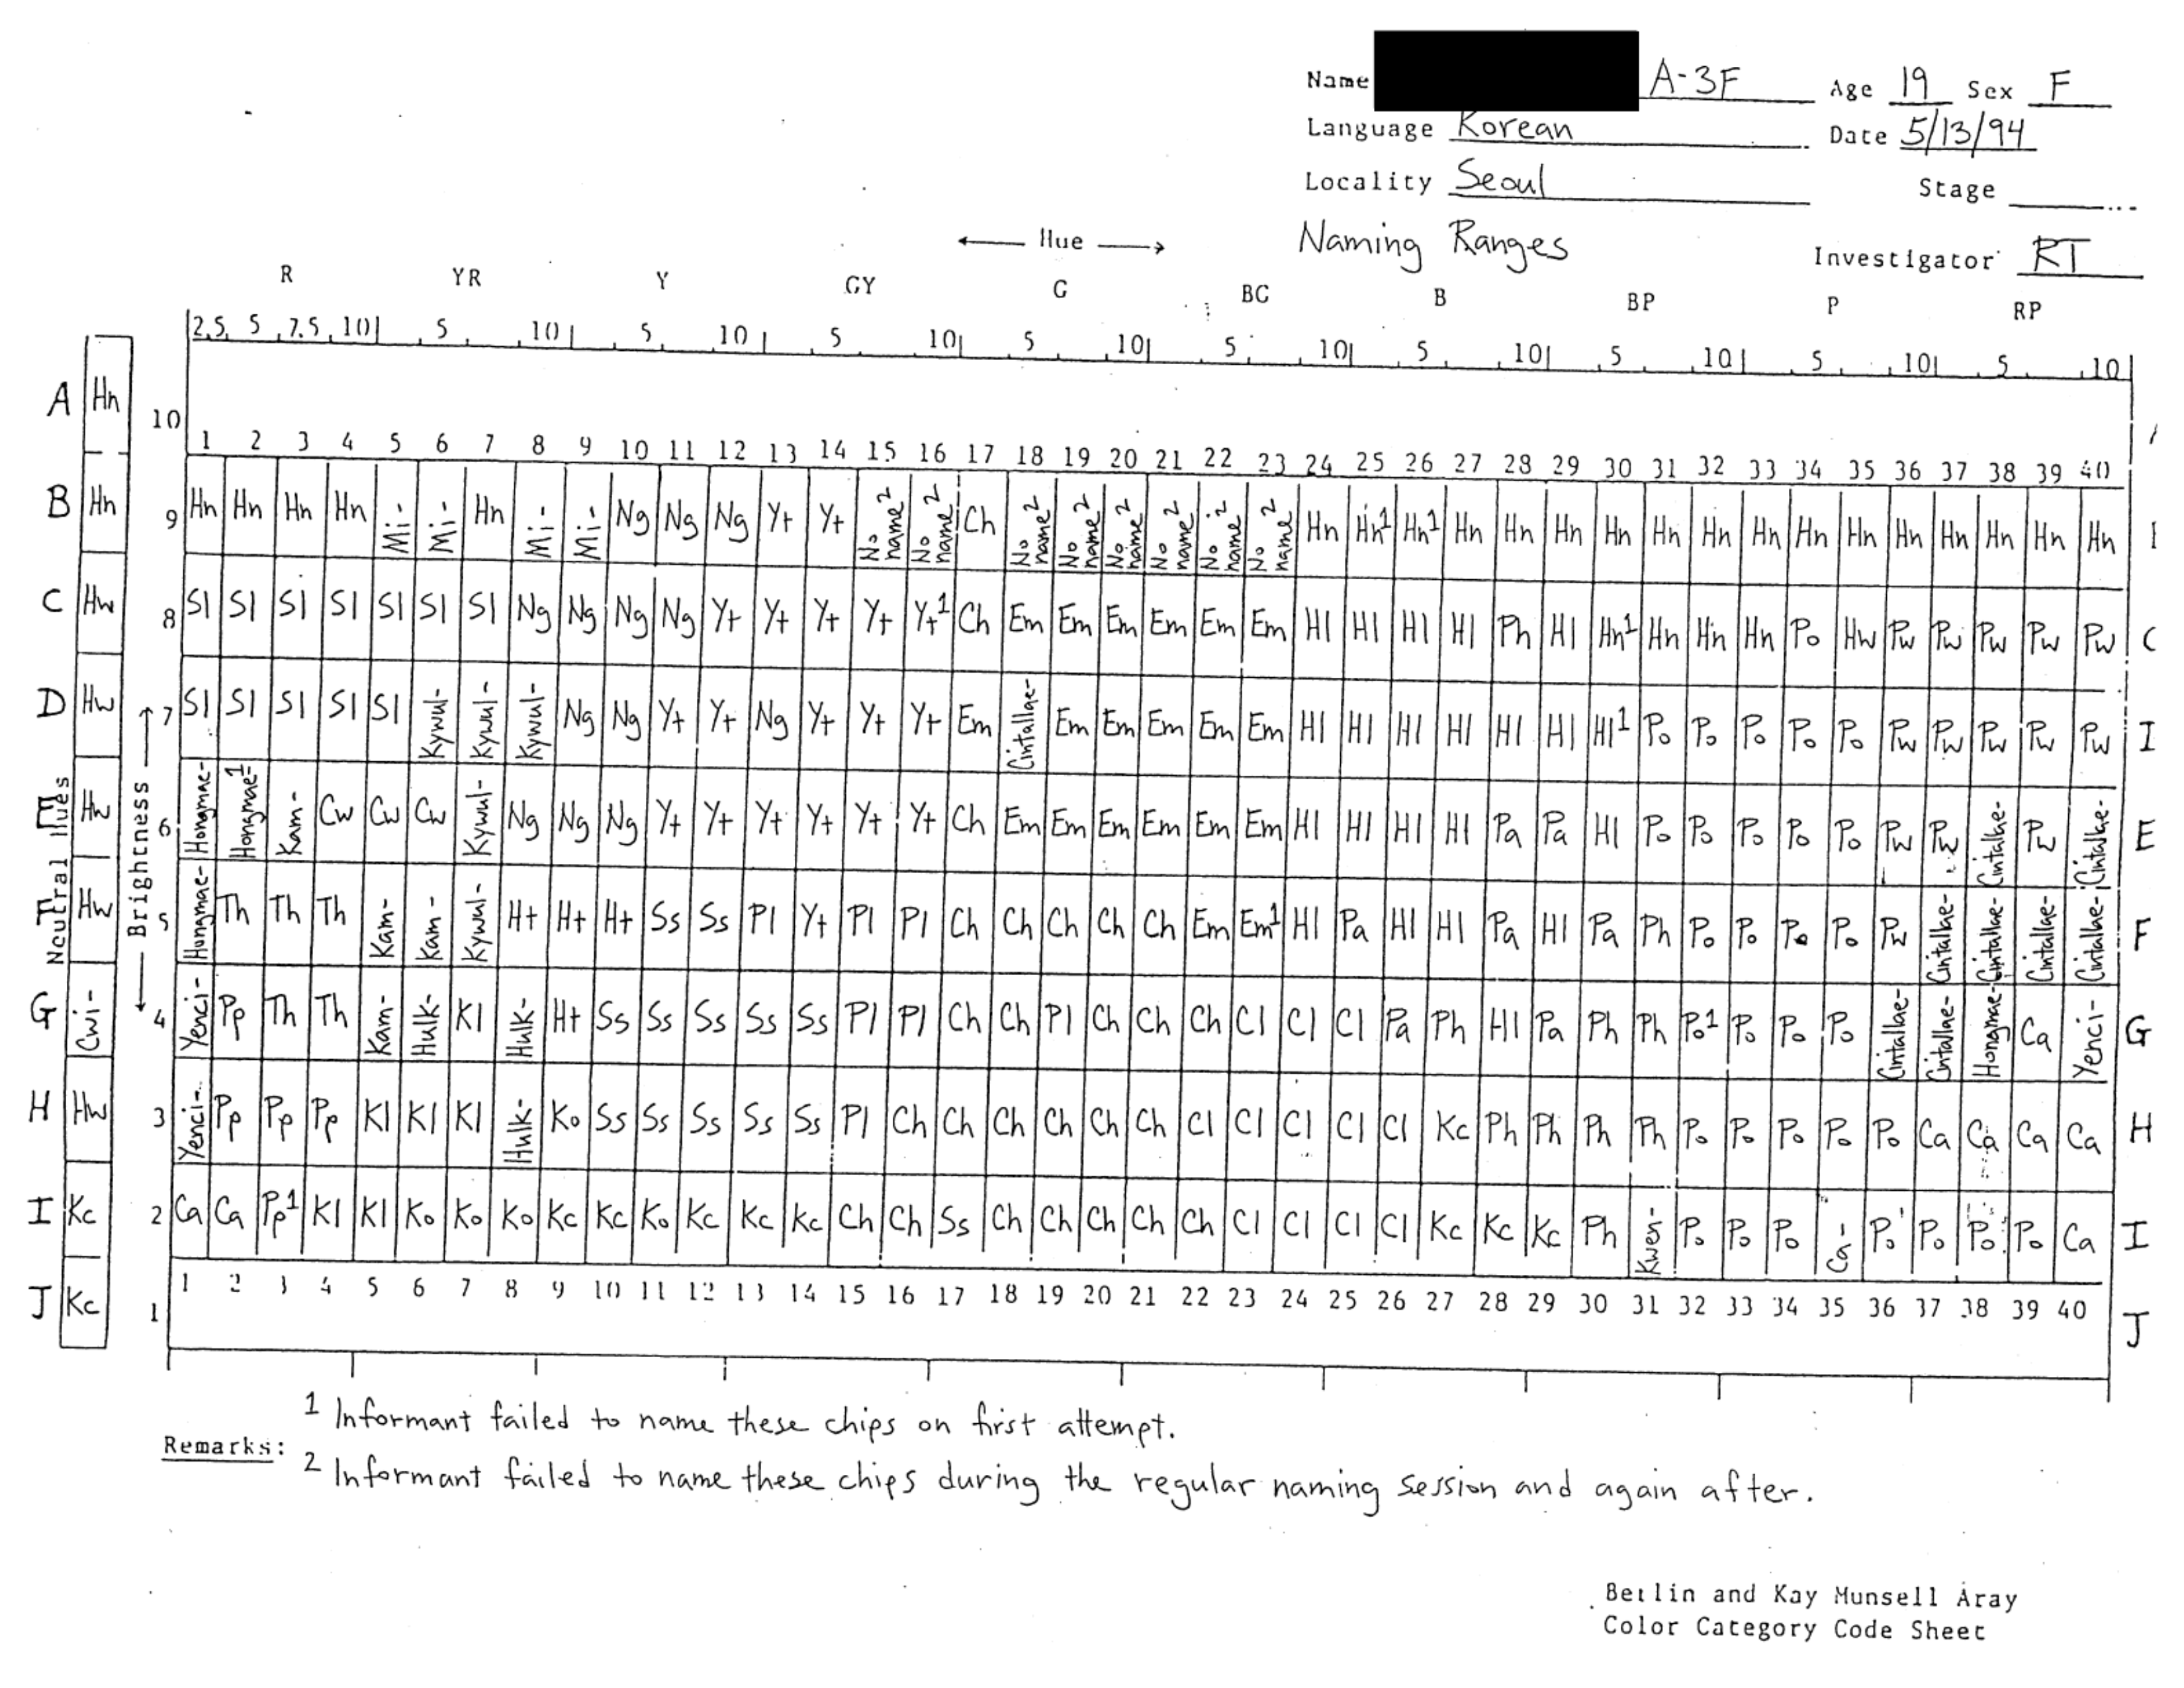 Name A-3F Age 19 Sex F
Language Korean Date 5/13/94
Locality Seoul Stage
Naming Ranges Investigator RT
← Hue →
R YR Y GY G BG B BP P RP
2.5 5 7.5 10 5 10 5 10 5 10 5 10 5 10 5 10 5 10 5 10 5 10
A Hn 10
1 2 3 4 5 6 7 8 9 10 11 12 13 14 15 16 17 18 19 20 21 22 23 24 25 26 27 28 29 30 31 32 33 34 35 36 37 38 39 40
B Hn 9 Hn Hn Hn Hn Mi- Mi- Hn Mi- Mi- Ng Ng Ng Yt Yt No name2 No name2 Ch No name2 No name2 No name2 No name2 No name2 No name2 Hn Hn1 Hn1 Hn Hn Hn Hn Hn Hn Hn Hn Hn Hn Hn Hn Hn Hn
C Hw 8 Sl Sl Sl Sl Sl Sl Sl Ng Ng Ng Ng Yt Yt Yt Yt Yt1 Ch Em Em Em Em Em Em Hl Hl Hl Hl Ph Hl Hn1 Hn Hn Hn Po Hw Pw Pw Pw Pw Pw C
D Hw 7 Sl Sl Sl Sl Sl Kywul- Kywul- Kywul- Ng Ng Yt Yt Ng Yt Yt Yt Em Cintallae- Em Em Em Em Em Hl Hl Hl Hl Hl Hl Hl1 Po Po Po Po Po Pw Pw Pw Pw Pw I
E Hw 6 Hongmae- Hongmae-1 Kam- Cw Cw Cw Kywul- Ng Ng Ng Yt Yt Yt Yt Yt Yt Ch Em Em Em Em Em Em Hl Hl Hl Hl Pa Pa Hl Po Po Po Po Po Pw Pw Cintallae- Pw Cintallae- E
F Hw 5 Hongmae- Th Th Th Kam- Kam- Kywul- Ht Ht Ht Ss Ss Pl Yt Pl Pl Ch Ch Ch Ch Ch Em Em1 Hl Pa Hl Hl Pa Hl Pa Ph Po Po Po Po Pw Cintallae- Cintallae- Cintallae- Cintallae- F
G Cwi- 4 Yenci- Pp Th Th Kam- Hulk- Kl Hulk- Ht Ss Ss Ss Ss Ss Pl Pl Ch Ch Pl Ch Ch Ch Cl Cl Cl Pa Ph Hl Pa Ph Ph Po1 Po Po Po Cintallae- Cintallae- Hongmae- Ca Yenci- G
H Hw 3 Yenci- Pp Pp Pp Kl Kl Kl Hulk- Ko Ss Ss Ss Ss Ss Pl Ch Ch Ch Ch Ch Ch Cl Cl Cl Cl Cl Kc Ph Ph Ph Ph Po Po Po Po Po Ca Ca Ca Ca H
I Kc 2 Ca Ca Pp1 Kl Kl Ko Ko Ko Kc Kc Ko Kc Kc Kc Ch Ch Ss Ch Ch Ch Ch Ch Cl Cl Cl Cl Kc Kc Kc Ph Po Po Po Po1 Po Po Po Ca I
1 2 3 4 5 6 7 8 9 10 11 12 13 14 15 16 17 18 19 20 21 22 23 24 25 26 27 28 29 30 31 32 33 34 35 36 37 38 39 40
J Kc 1 J
Neutral Hues
← Brightness →
1 Informant failed to name these chips on first attempt.
Remarks:
2 Informant failed to name these chips during the regular naming session and again after.
Berlin and Kay Munsell Aray
Color Category Code Sheet